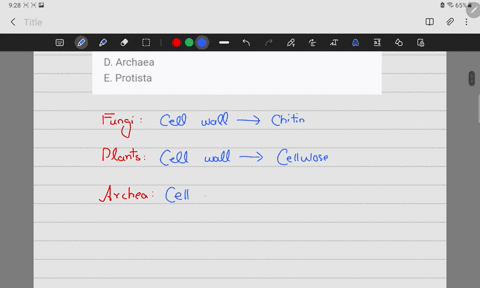 9:28
65%
Title
D. Archaea
E. Protista
Fungi: Cell wall → Chitin
Plants: Cell wall → Cellulose
Archea: Cell